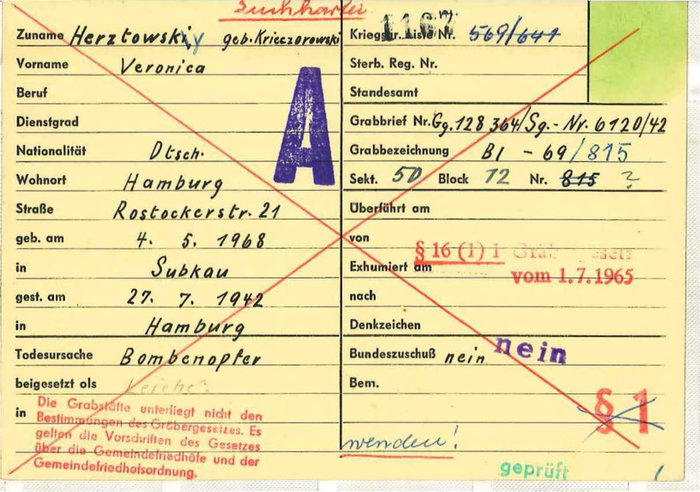 Suchkartei
Zuname Herztowski y geb. Krieczorowski
Vorname Veronica
Beruf
Dienstgrad
Nationalität Dtsch.
Wohnort Hamburg
Straße Rostockerstr. 21
geb. am 4. 5. 1968
in Subkau
gest. am 27. 7. 1942
in Hamburg
Todesursache Bombenopfer
beigesetzt als Leiche?
in
Die Grabstätte unterliegt nicht den
Bestimmungen des Gräbergesetzes. Es
gelten die Vorschriften des Gesetzes
über die Gemeindefriedhöfe und der
Gemeindefriedhofsordnung.
A
1167
Kriegstr. Liste Nr. 569/641
Sterb. Reg. Nr.
Standesamt
Grabbrief Nr. Gg. 128 364/Sg.-Nr. 6120/42
Grabbezeichnung BI - 69/815
Sekt. 50 Block 12 Nr. 815 ?
Überführt am
von
§ 16 (1) 1 Gräbergesetz
Exhumiert am
vom 1.7.1965
nach
Denkzeichen
Bundeszuschuß nein nein
Bem.
§ 1
wenden!
geprüft